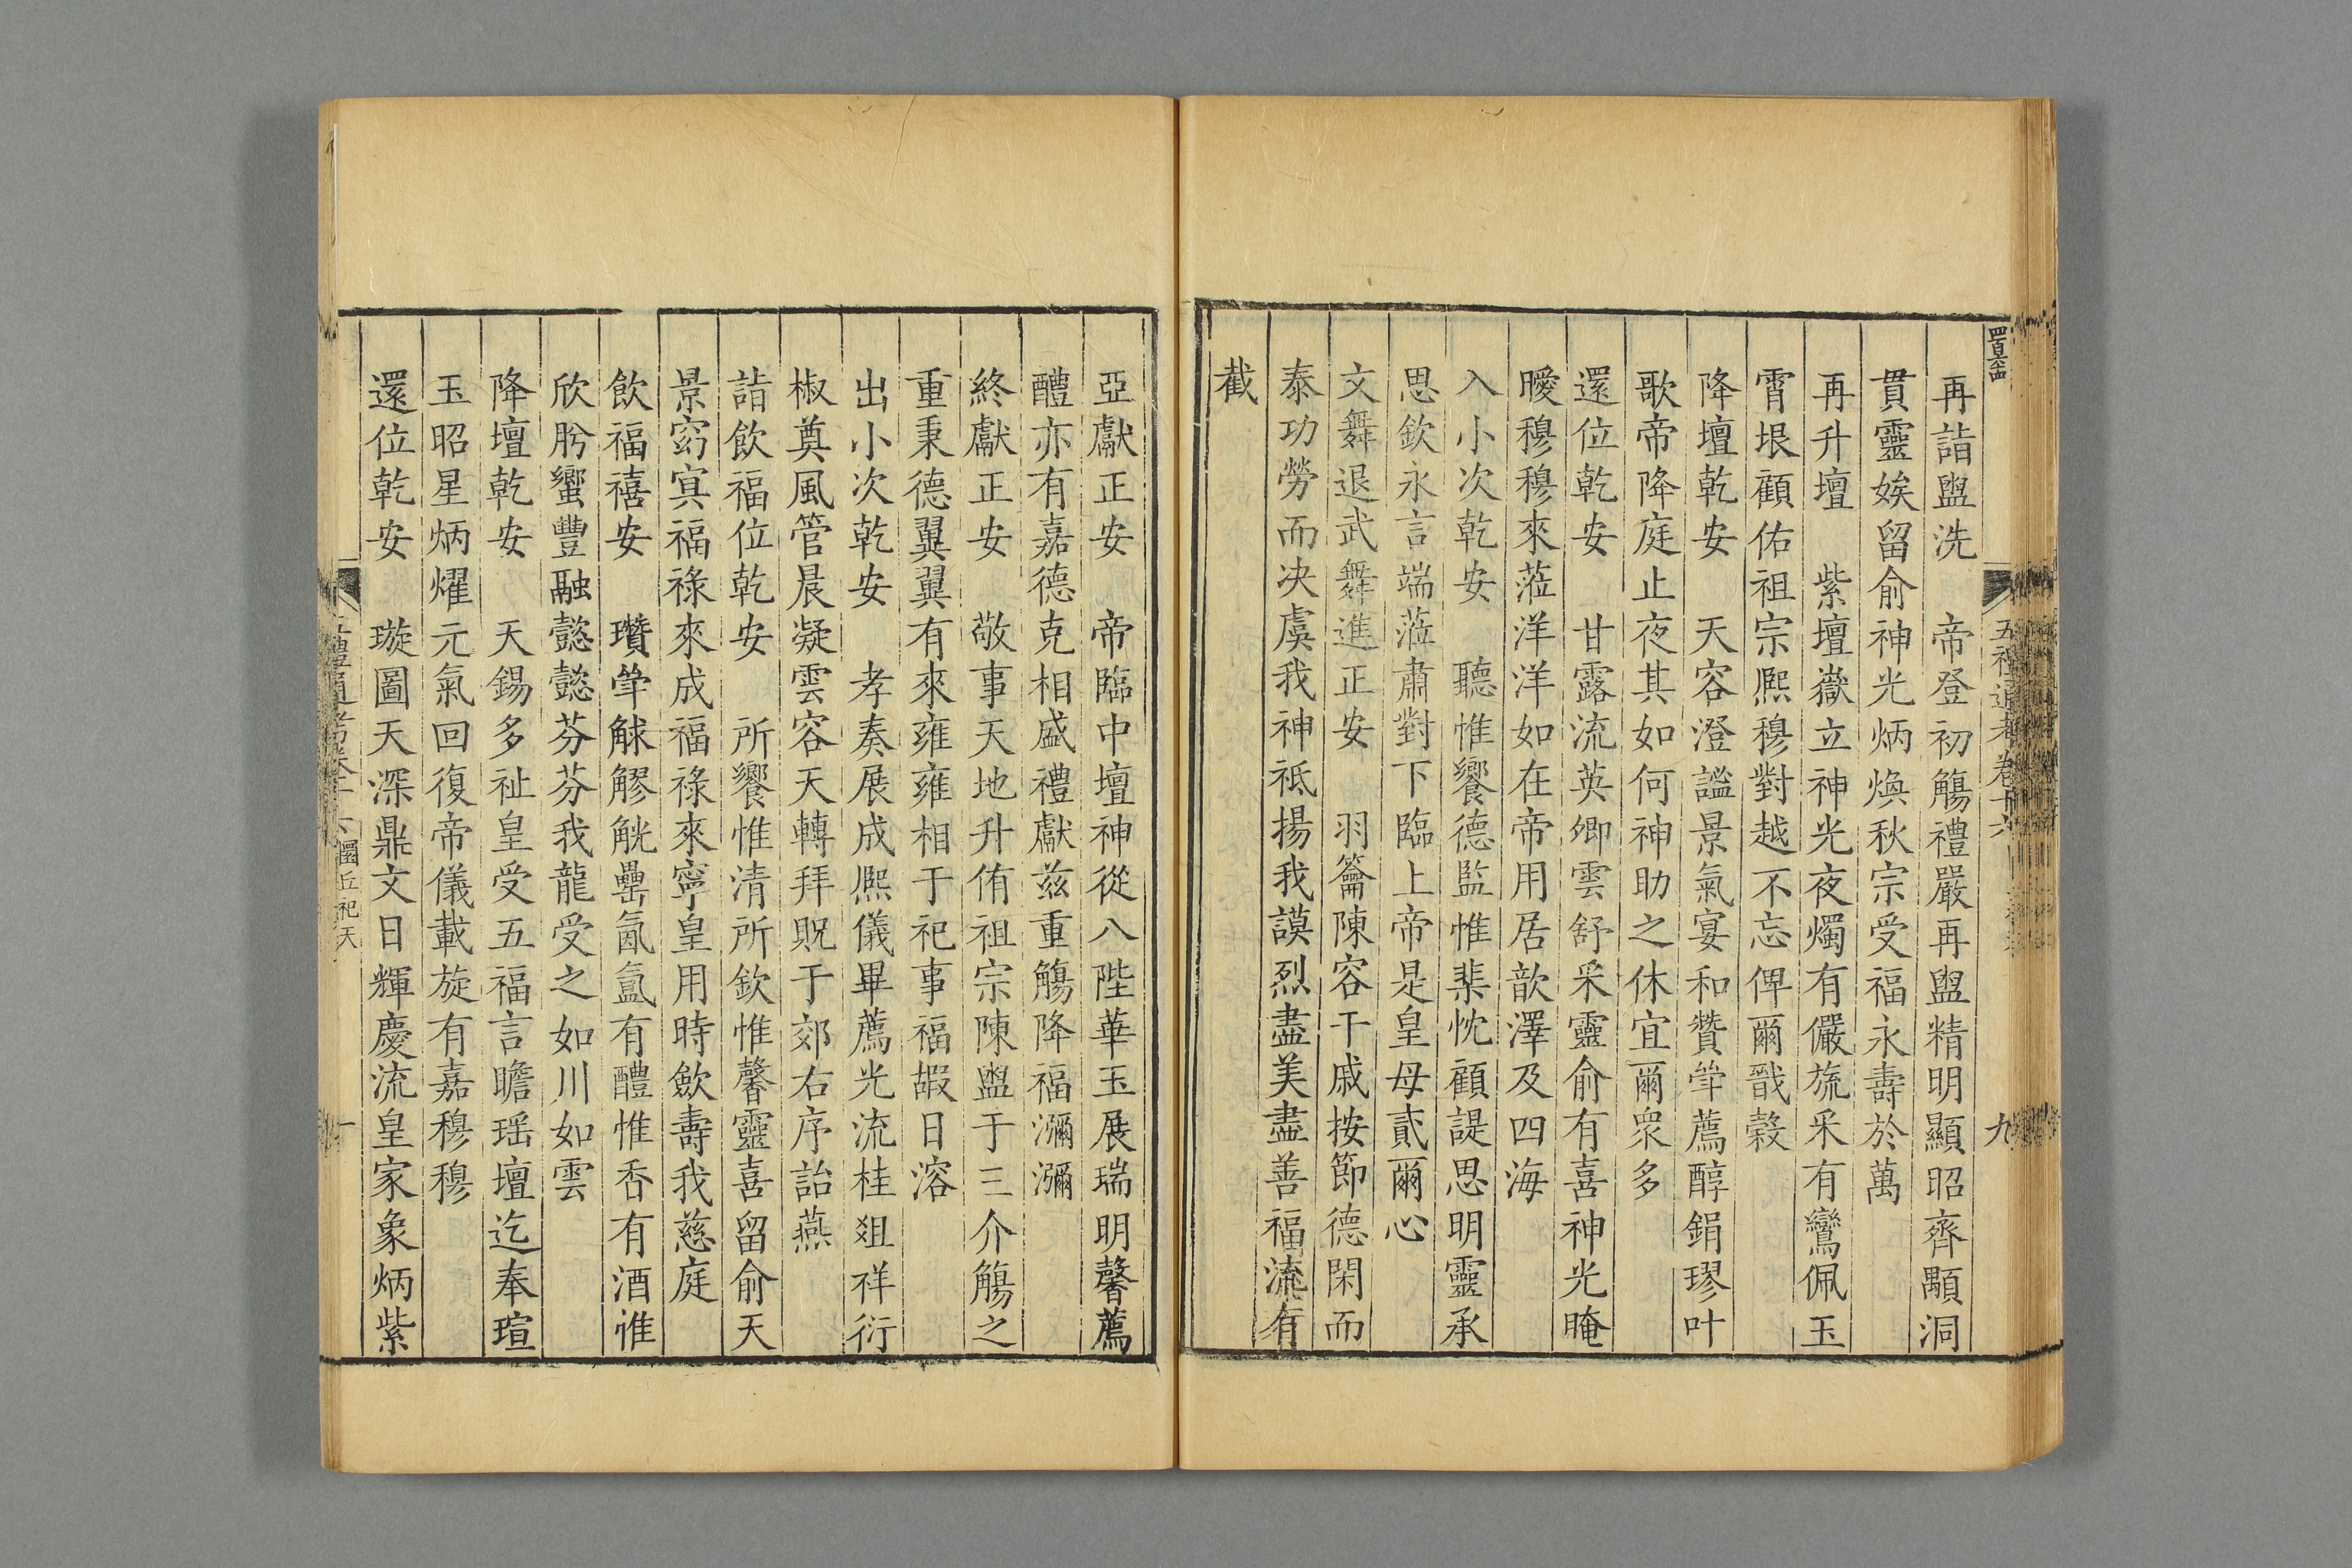 五禮通考卷十六
九
再詣盥洗　帝登初觴禮嚴再盥精明顯昭齊顒洞
貫靈娭留俞神光炳煥秋宗受福永壽於萬
再升壇　紫壇嶽立神光夜燭有儼旒采有鸞佩玉
霄垠顧佑祖宗熙穆對越不忘俾爾戩穀
降壇乾安　天容澄謐景氣宴和贊斝薦醇鋗璆叶
歌帝降庭止夜其如何神助之休宜爾衆多
還位乾安　甘露流英卿雲舒采靈俞有喜神光晻
曖穆穆來蒞洋洋如在帝用居歆澤及四海
入小次乾安　聽惟饗德監惟棐忱顧諟思明靈承
思欽永言端蒞肅對下臨上帝是皇母貳爾心
文舞退武舞進正安　羽籥陳容干戚按節德閑而
泰功勞而決虞我神祗揚我謨烈盡美盡善福流有
截
亞獻正安　帝臨中壇神從八陛華玉展瑞明馨薦
醴亦有嘉德克相盛禮獻兹重觴降福瀰瀰
終獻正安　敬事天地升侑祖宗陳盥于三介觴之
重秉德翼翼有來雍雍相于祀事福嘏日溶
出小次乾安　孝奏展成熙儀畢薦光流桂俎祥衍
椒奠風管晨凝雲容天轉拜貺于郊右序詒燕
詣飲福位乾安　所饗惟清所欽惟馨靈喜留俞天
景窈冥福祿來成福祿來寧皇用時歛壽我慈庭
飲福禧安　瓚斝觩觺觥罍氤氳有醴惟香有酒惟
欣肸蠁豐融懿懿芬芬我龍受之如川如雲
降壇乾安　天錫多祉皇受五福言瞻瑶壇迄奉瑄
玉昭星炳燿元氣回復帝儀載旋有嘉穆穆
還位乾安　璇圖天深鼎文日輝慶流皇家象炳紫
圜丘祀天